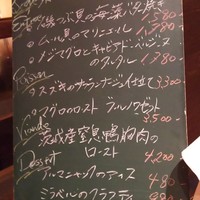 つぶ貝の海藻バター焼き 1,580-
・ムール貝のマリニエール 1,780-
・メジマグロとキャビア・ド・オーベルジーヌの
タルタル 1,780-
Poisson
・スズキのナージュ仕立て 3,300-
・マグロのロースト ブルノワゼット
3,500-
Viande
・茨城産窒息鴨胸肉の
ロースト 4,200-
Dessert
・アルマニャックのアイス 480-
・ミラベルのクラフティ